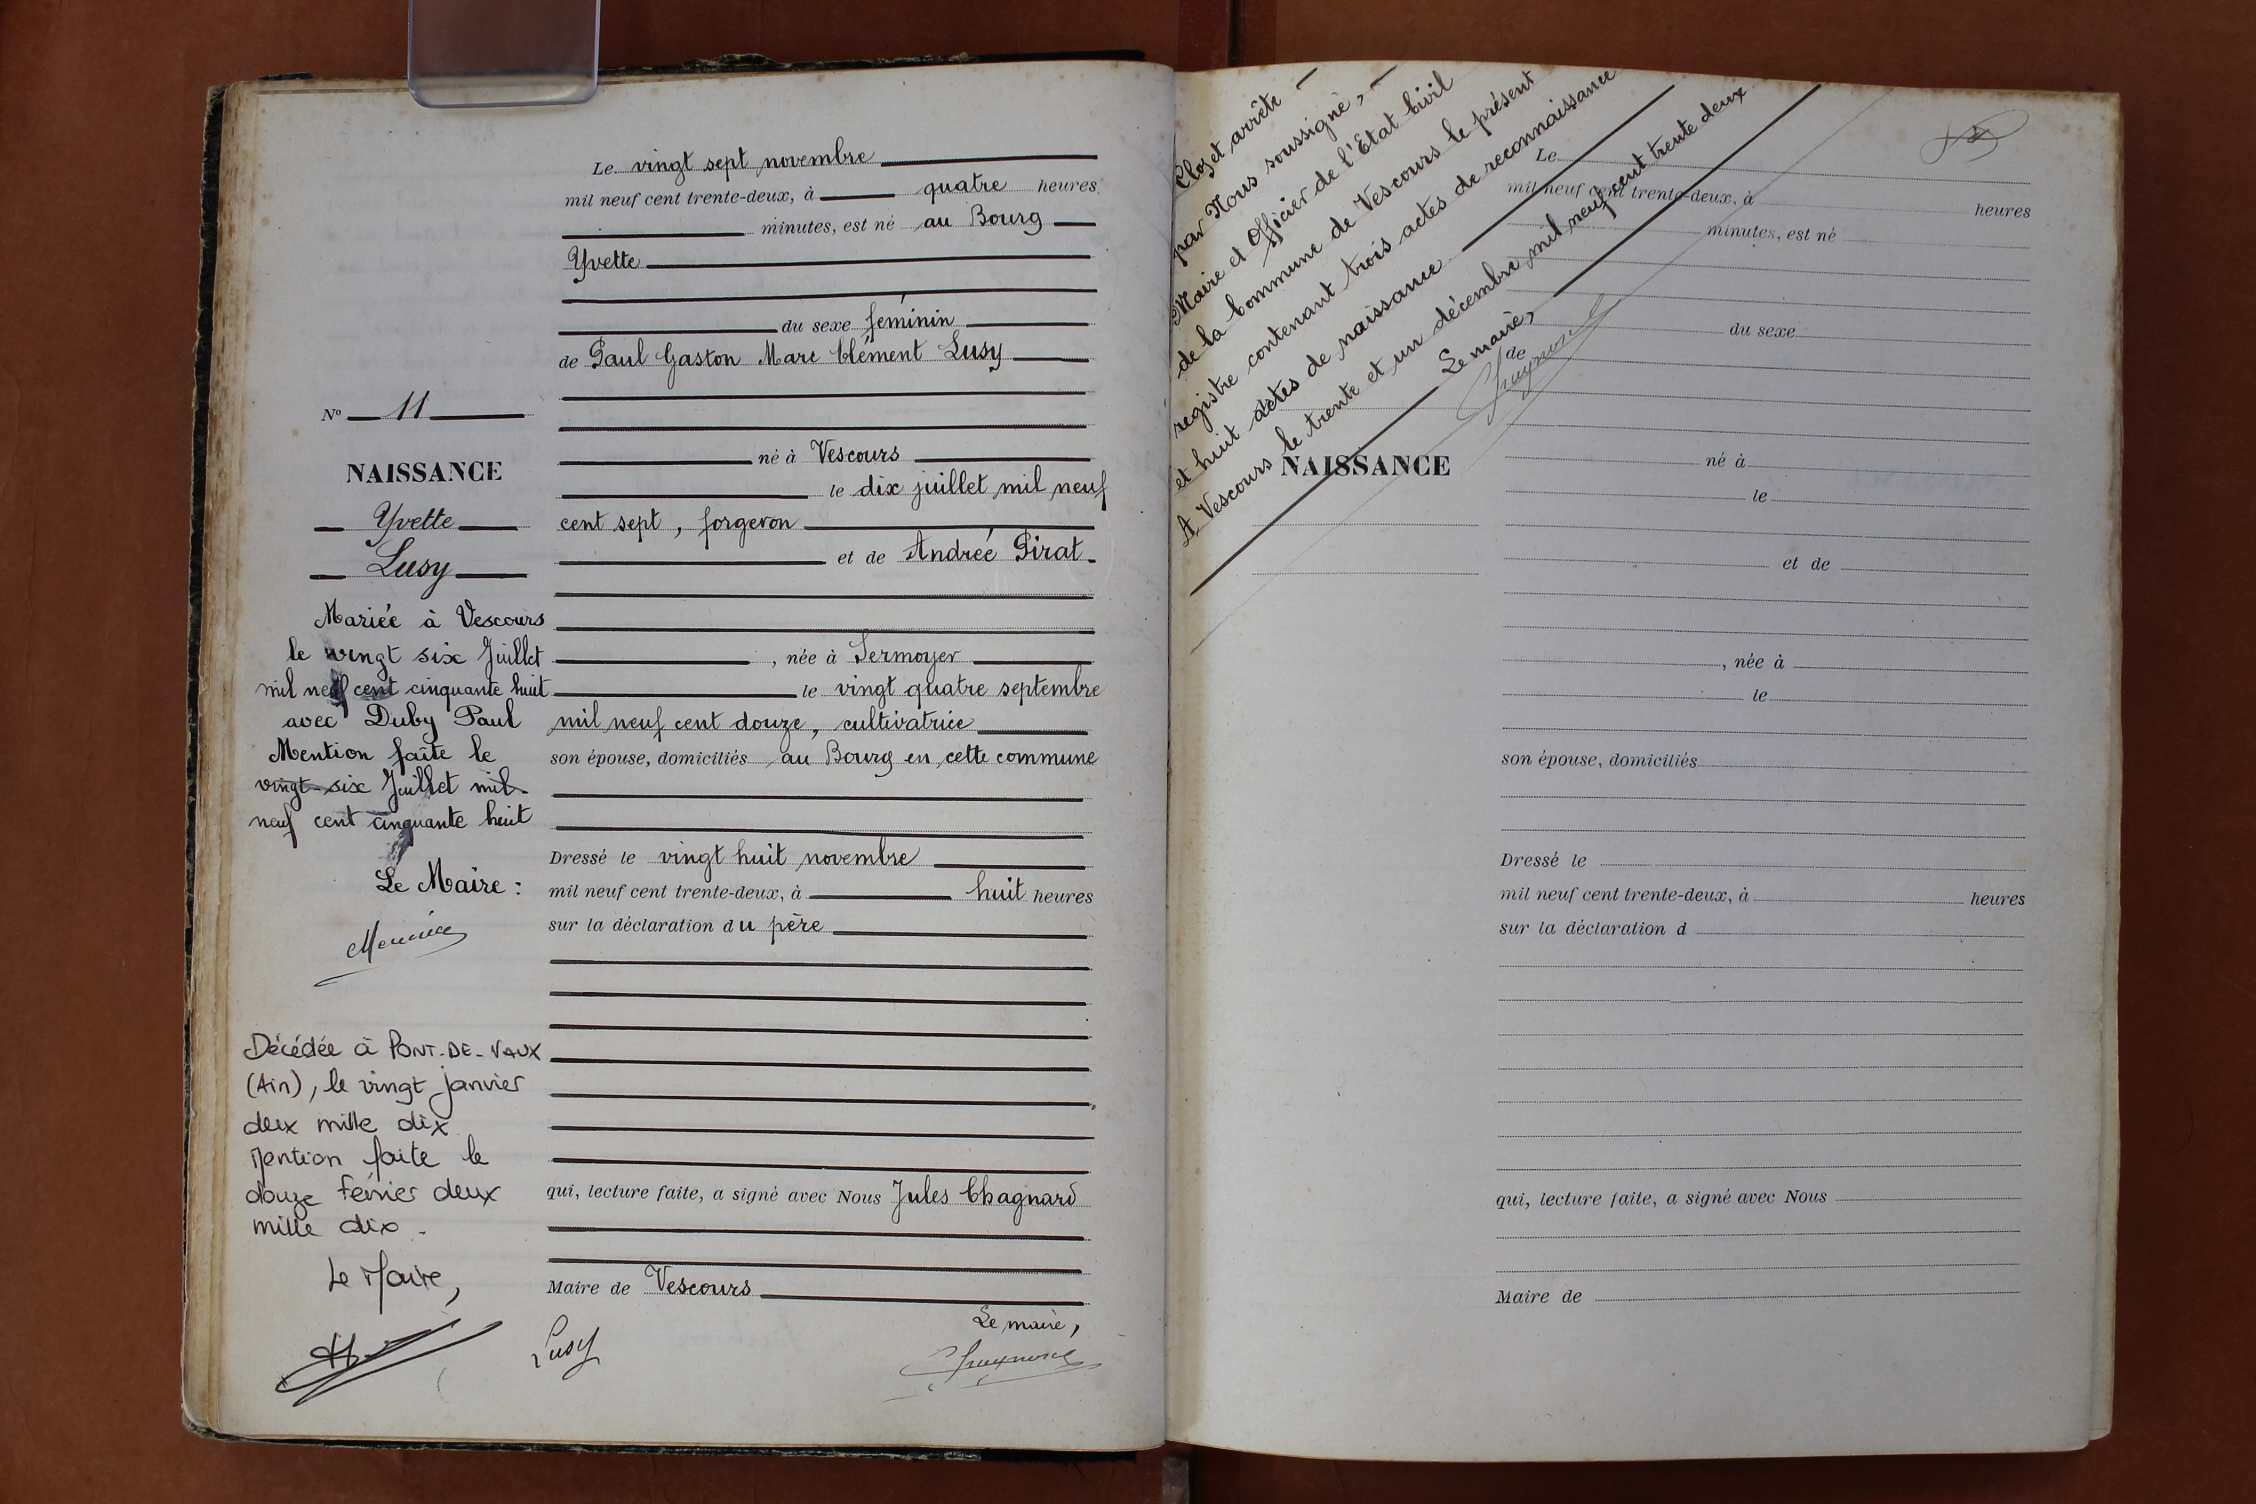 Le vingt sept novembre
mil neuf cent trente-deux, à quatre heures
minutes, est né au Bourg
Yvette
du sexe féminin
de Paul Gaston Marc Clément Lusy
né à Vescours
le dix juillet mil neuf
cent sept, forgeron
et de Andréé Pirat
, née à Sermoyer
le vingt quatre septembre
mil neuf cent douze, cultivatrice
son épouse, domiciliés au Bourg en cette commune
Dressé le vingt huit novembre
mil neuf cent trente-deux, à huit heures
sur la déclaration du père
qui, lecture faite, a signé avec Nous Jules Chagnard
Maire de Vescours
Le maire,
Lusy
No 11
NAISSANCE
Yvette
Lusy
Mariée à Vescours
le vingt six Juillet
mil neuf cent cinquante huit
avec Duby Paul
Mention faîte le
vingt-six Juillet mil-
neuf cent cinquante huit
Le Maire :
Décédée à PONT-DE-VAUX
(Ain), le vingt janvier
deux mille dix
Mention faite le
douze février deux
mille dix.
Le Maire,
Clos et arrêté
par Nous soussigné,
Maire et Officier de l'Etat Civil
de la Commune de Vescours le présent
registre contenant trois actes de reconnaissance
et huit actes de naissance
A Vescours le trente et un décembre mil neuf cent trente deux
Le maire,
Le
mil neuf cent trente-deux, à heures
minutes, est né
du sexe
de
NAISSANCE
né à
le
et de
, née à
le
son épouse, domiciliés
Dressé le
mil neuf cent trente-deux, à heures
sur la déclaration d
qui, lecture faite, a signé avec Nous
Maire de